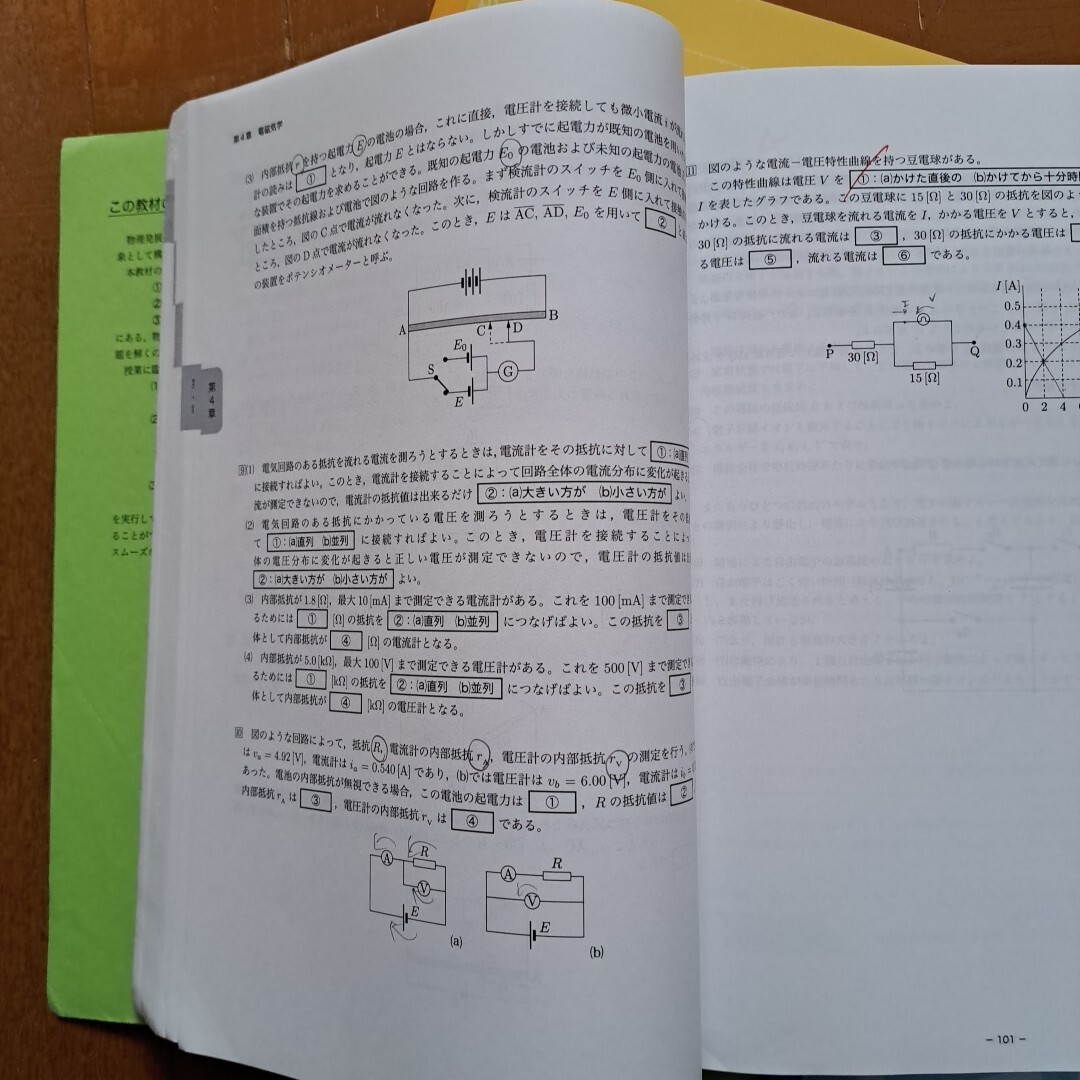 この教材
物理発展
象として構
本教材の
①
②
③
にある。物
題を解くの
授業に臨
を実行して
ることが
スムーズ
第4章 電磁気学
(3) 内部抵抗 r を持つ起電力 E の電池の場合，これに直接，電圧計を接続しても微小電流 i が
計の読みは ① となり，起電力 E とはならない。しかしすでに起電力が既知の電池を用い
な装置でその起電力を求めることができる。既知の起電力 E₀ の電池および未知の起電力の電池
面積を持つ抵抗線および電池で図のような回路を作る。まず検流計のスイッチを E₀ 側に入れて
したところ，図のC点で電流が流れなくなった。次に，検流計のスイッチを E 側に入れて
ところ，図のD点で電流が流れなくなった。このとき，E は AC, AD, E₀ を用いて ② と
の装置をポテンシオメーターと呼ぶ。
A B
C D
E₀
S G
E
第4章
9 (1) 電気回路のある抵抗を流れる電流を測ろうとするときは，電流計をその抵抗に対して ①：(a)直列
に接続すればよい。このとき，電流計を接続することによって回路全体の電流分布に変化が起きる
流が測定できないので，電流計の抵抗値は出来るだけ ②：(a)大きい方が (b)小さい方が よい
(2) 電気回路のある抵抗にかかっている電圧を測ろうとするときは，電圧計をその
て ①：(a)直列 (b)並列 に接続すればよい。このとき，電圧計を接続することによっ
体の電圧分布に変化が起きると正しい電圧が測定できないので，電圧計の抵抗値は
②：(a)大きい方が (b)小さい方が よい。
(3) 内部抵抗が1.8 [Ω]，最大10 [mA] まで測定できる電流計がある。これを100 [mA] まで測定でき
るためには ① [Ω] の抵抗を ②：(a)直列 (b)並列 につなげばよい。この抵抗を ③
体として内部抵抗が ④ [Ω] の電流計となる。
(4) 内部抵抗が5.0 [kΩ]，最大100 [V] まで測定できる電圧計がある。これを500 [V] まで測定でき
るためには ① [kΩ] の抵抗を ②：(a)直列 (b)並列 につなげばよい。この抵抗を ③
体として内部抵抗が ④ [kΩ] の電圧計となる。
10 図のような回路によって，抵抗 R，電流計の内部抵抗 r_A，電圧計の内部抵抗 r_V の測定を行う。
は v_a = 4.92 [V]，電流計は i_a = 0.540 [A] であり，(b)では電圧計は v_b = 6.00 [V]，電流計は i_b =
あった。電池の内部抵抗が無視できる場合，この電池の起電力は ① ，R の抵抗値は ②
内部抵抗 r_A は ③ ，電圧計の内部抵抗 r_V は ④ である。
A R
V
E
(a)
A R
V
E
(b)
11 図のような電流－電圧特性曲線を持つ豆電球がある。
この特性曲線は電圧 V を ①：(a)かけた直後の (b)かけてから十分時
I を表したグラフである。この豆電球に 15 [Ω] と 30 [Ω] の抵抗を図のよ
かける。このとき，豆電球を流れる電流を I，かかる電圧を V とすると，
30 [Ω] の抵抗に流れる電流は ③ ，30 [Ω] の抵抗にかかる電圧は
る電圧は ⑤ ，流れる電流は ⑥ である。
I V
P 30 [Ω] Q
15 [Ω]
I [A]
0.5
0.4
0.3
0.2
0.1
0 2 4
－101－